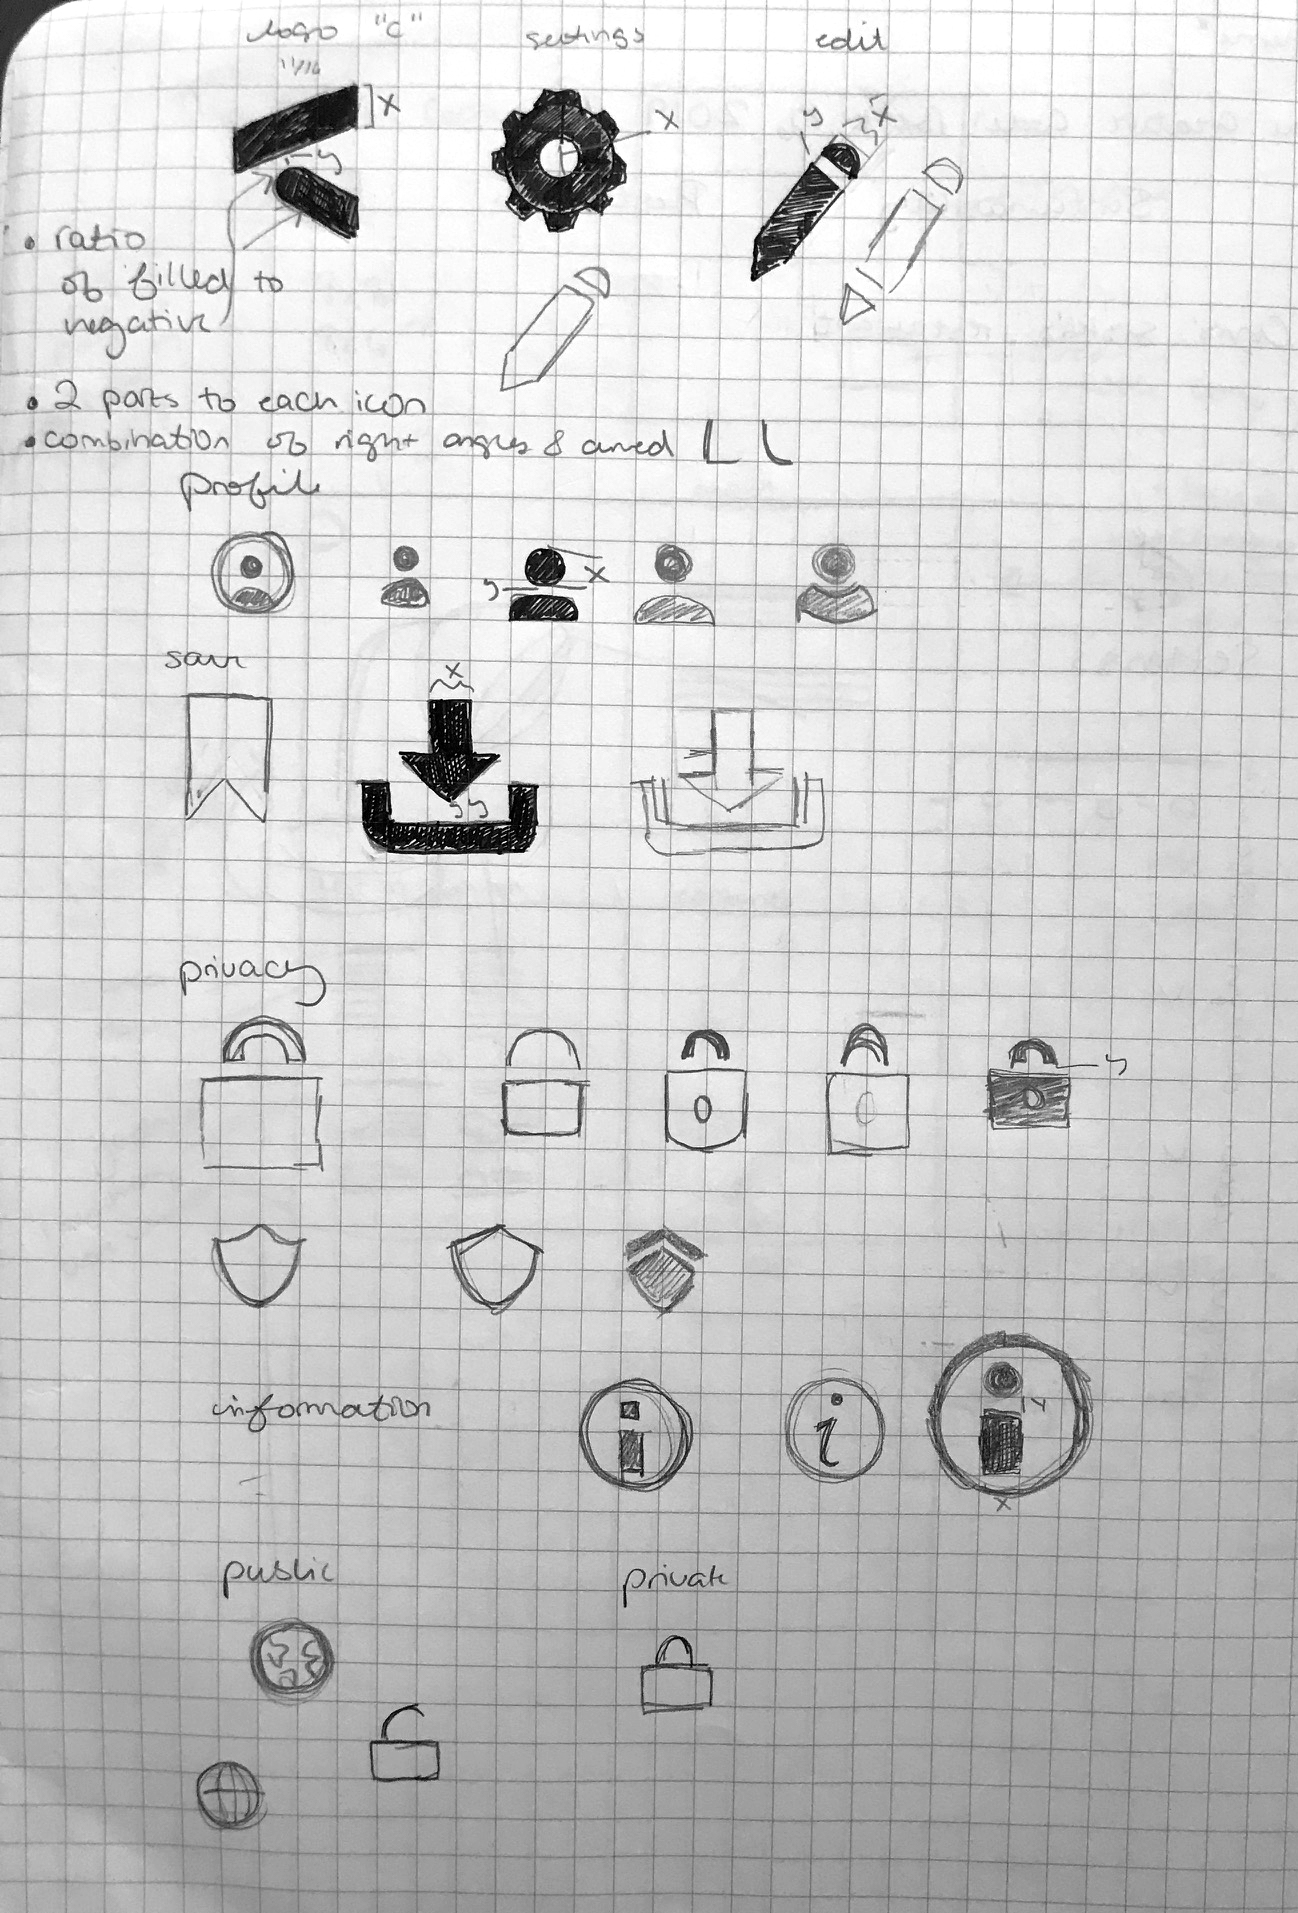 logo "C"
settings
edit
x
x
y
x
y
• ratio
of filled to
negative
• 2 parts to each icon
• combination of right angles & curved
profile
y
x
save
x
y y
privacy
y
information
y
x
public
private